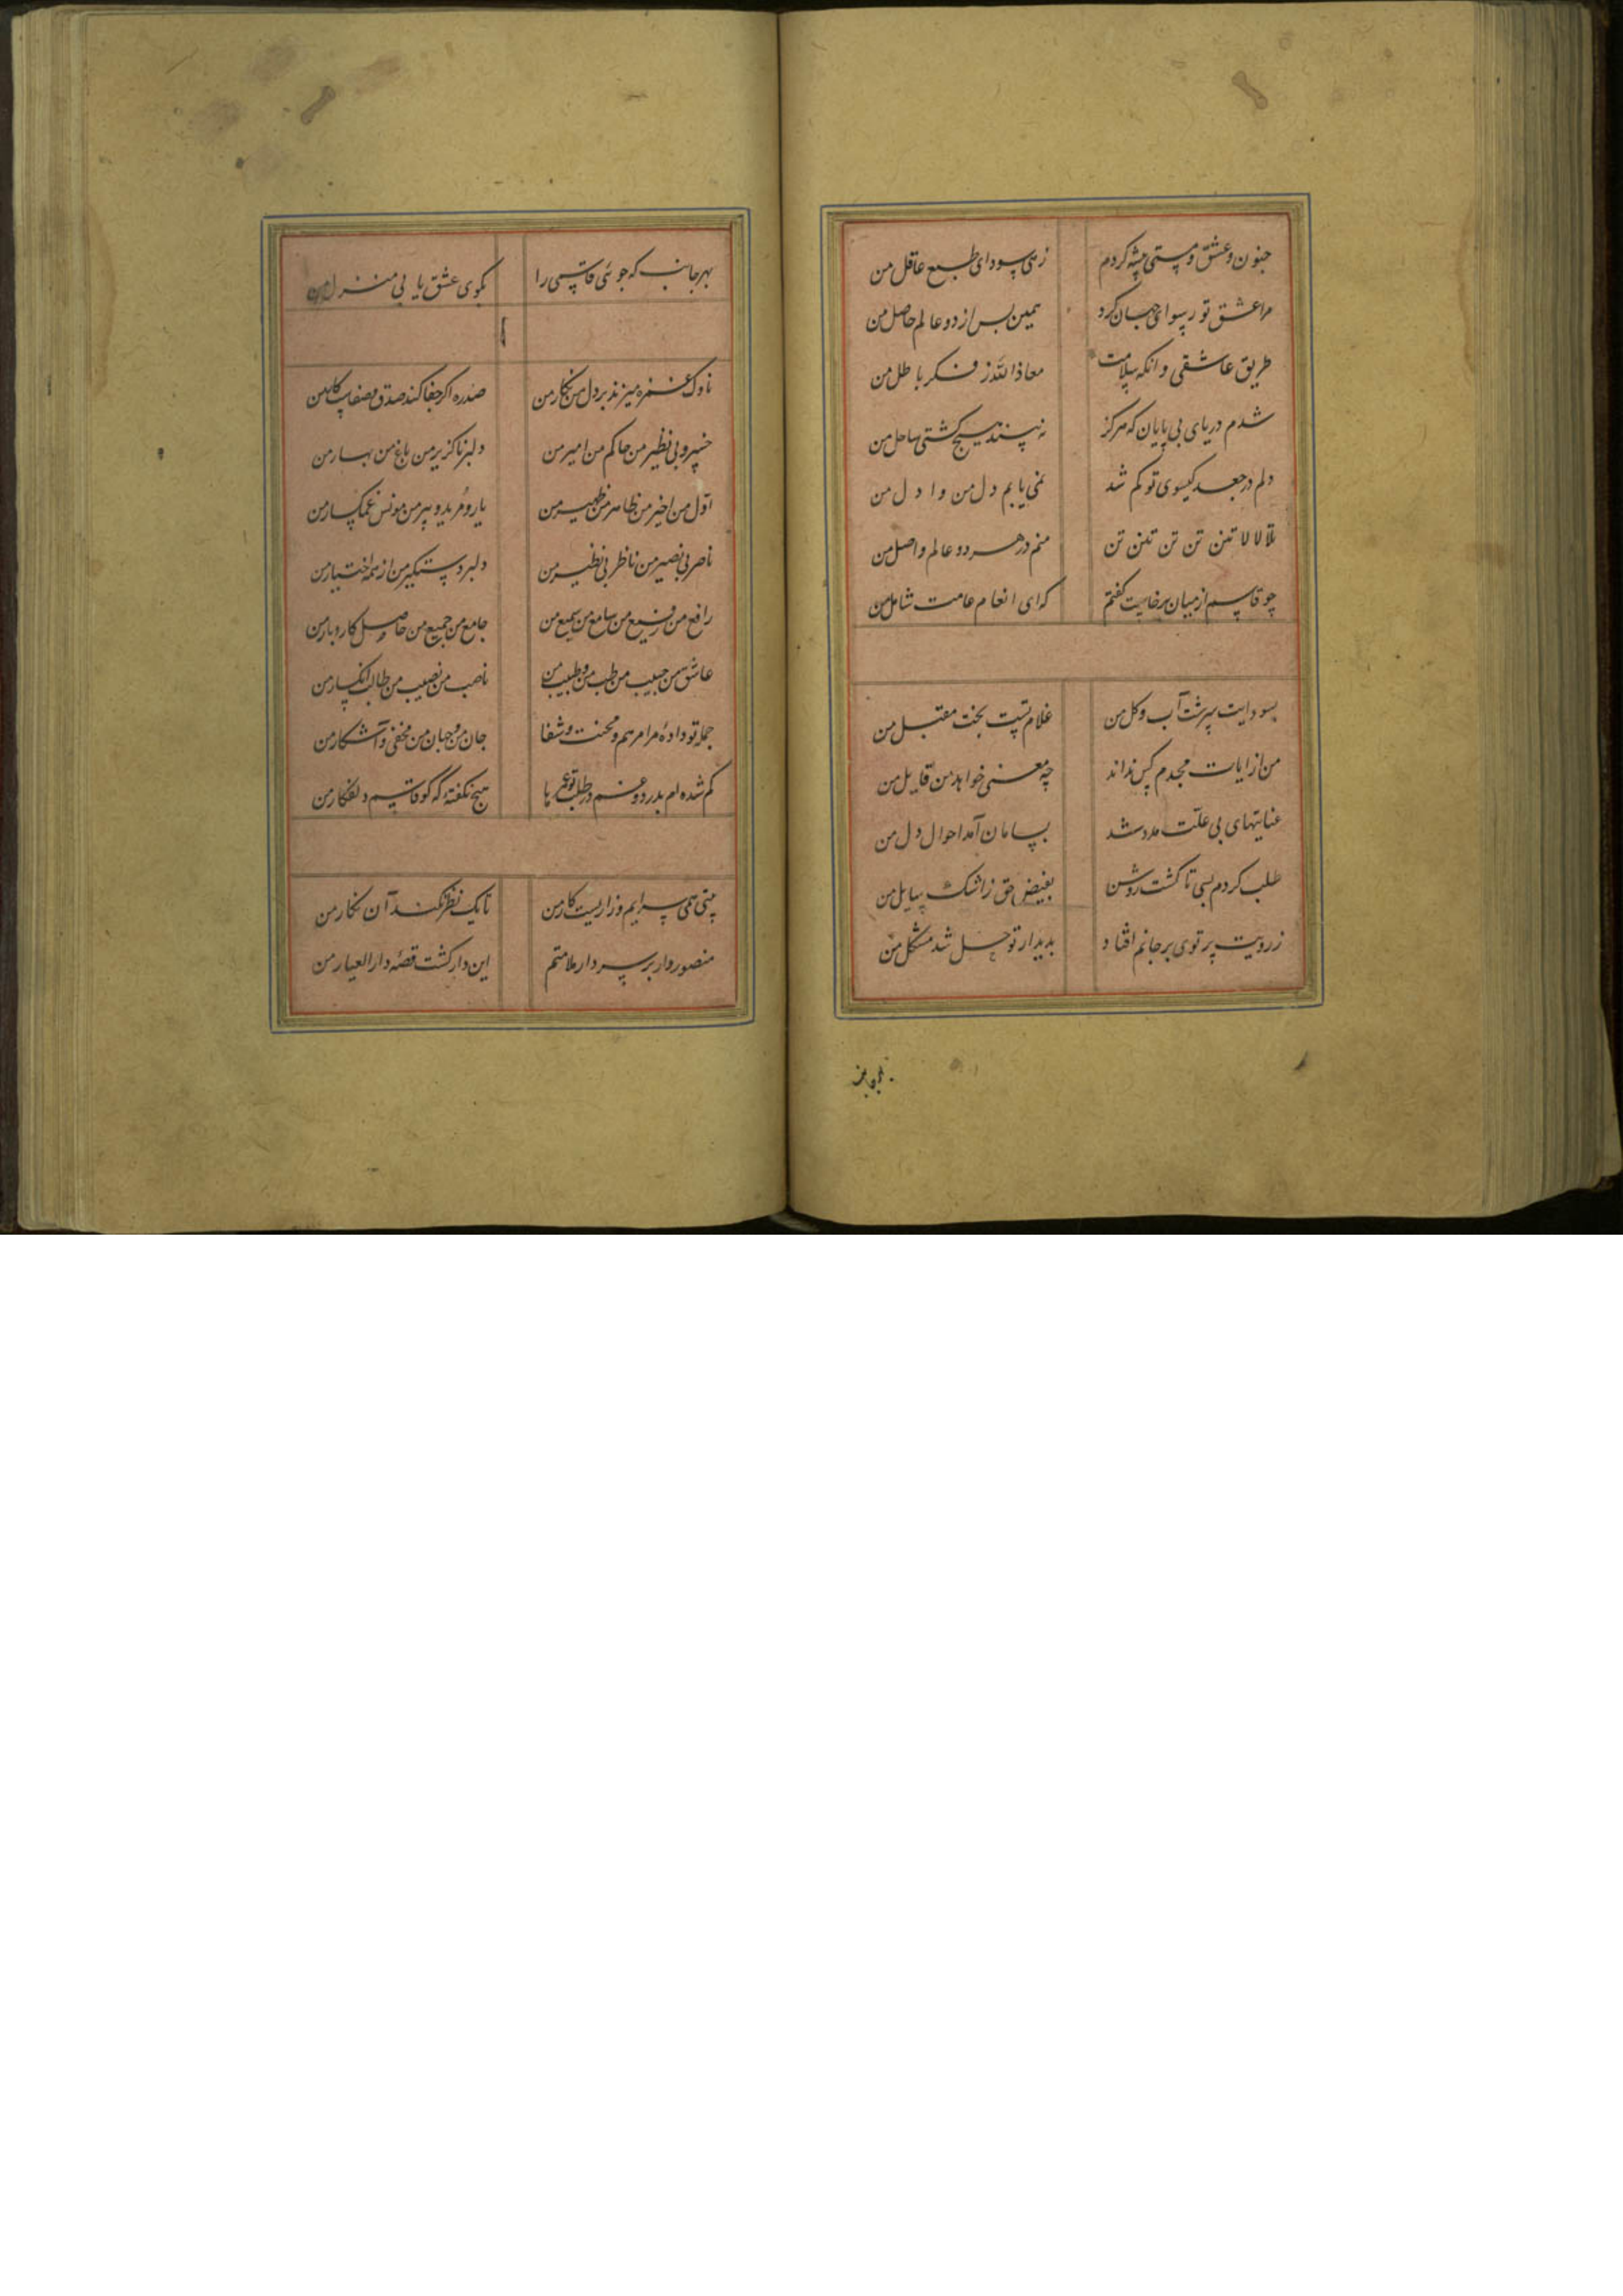 جنون و عشق و مستی پیشه کردم زهی سودای طبع عاقل من
مرا عشق تو رسوای جهان کرد همین بس از دو عالم حاصل من
طریق عاشقی وانکه سلامت معاذالله ز فکر باطل من
شدم دریای بی پایان که هرکز نه بیند هیچ کشتی ساحل من
دلم در جعد کیسوی تو کم شد نمی یابم دل من وا دل من
تلالالا تنن تن تن تنن تن منم در هر دو عالم واصل من
چو قاسم از میان برخاست کفتم که ای انعام عامت شامل من
بسودایت سرشت آب و کل من غلام تست بخت مقبل من
من از ایات مجدم کس نداند چه معنی خواهد من قایل من
عنایتهای بی علت مدد شد بسامان آمد احوال دل من
طلب کردم بسی تا کشت روشن بفیض حق ز اشک سایل من
ز رویت پرتوی بر جانم افتاد بدیدار تو حل شد مشکل من
بهر جانب
بهر جانب که جوئی قاسمی را بکوی عشق یابی منزل من
ناوک غمزه میزند بر دل من نکار من صدره اکر جفا کند صدق و صفاست کار من
خسرو بی نظیر من حاکم من امیر من دلبر ناکزیر من باغ من بهار من
اول من اخیر من ظاهر من ظهیر من یار و مرید و پیر من مونس غمکسار من
ناصر بی نصیر من ناظر بی نظیر من دلبر دستکیر من از همه اختیار من
رافع من رفیع من سامع من سمیع من جامع من جمیع من حاصل کار و بار من
عاشق من حبیب من طب من و طبیب من ناصب من نصیب من طالب انکسار من
جمله تو داده مرا مرهم و محنت و شفا جان من و جهان من مخفی و آشکار من
کم شده ام بدرد و غم در طلب تو عمرها هیچ نکفته که کو قاسم دلفکار من
مستی همی سرایم و زاریست کار من تا یک نظر نکند آن نکار من
منصوروار بر سر دار ملامتم این دار کشت قصه دارالعیار من